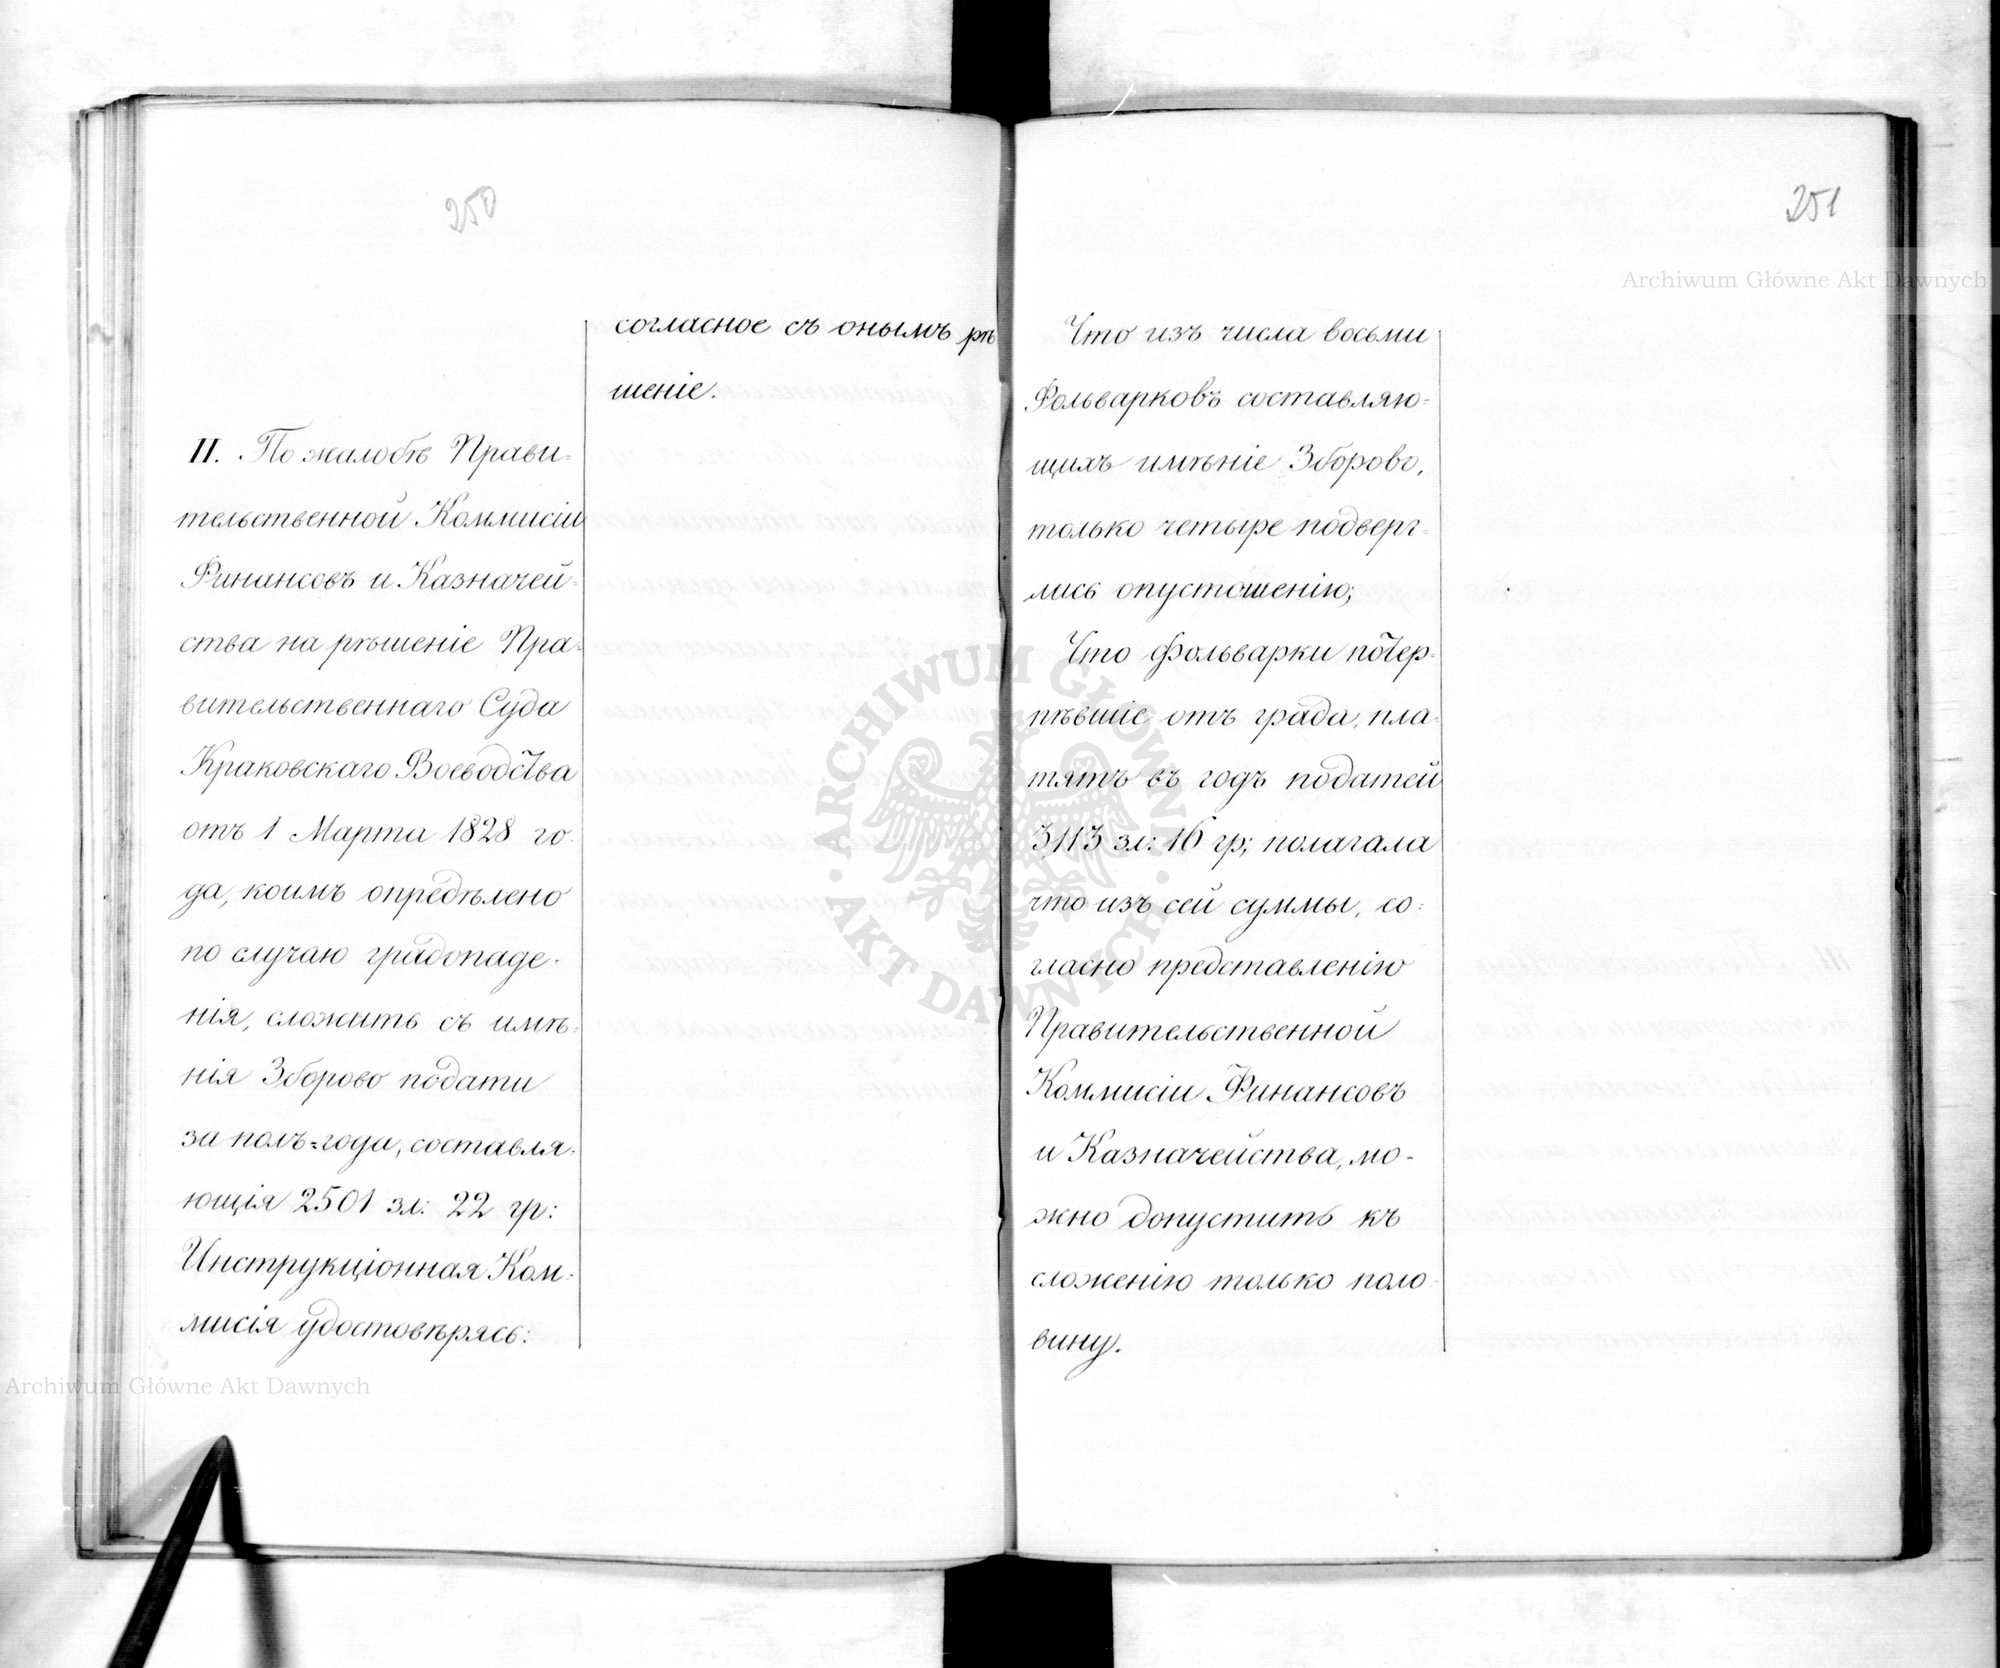 250
согласное съ онымъ рѣ
шеніе.
II. По жалобѣ Прави-
тельственной Коммисіи
Финансовъ и Казначей-
ства на рѣшеніе Пра-
вительственнаго Суда
Краковскаго Воеводства
отъ 1 Марта 1828 го-
да, коимъ опредѣлено
по случаю градопаде-
нія, сложить съ имѣ-
нія Зборово подати
за полъ=года, составля-
ющія 2501 зл: 22 гр:
Инструкціонная Ком-
мисія удостовѣрясь:
251
Что изъ числа восьми
Фольварковъ составляю-
щихъ имѣніе Зборово,
только четыре подверг-
лись опустошенію;
Что фольварки потер-
пѣвшіе отъ града, пла-
тятъ въ годъ податей
3113 зл: 16 гр; полагала
что изъ сей суммы, со-
гласно представленію
Правительственной
Коммисіи Финансовъ
и Казначейства, мо-
жно допустить къ
сложенію только поло-
вину.
Archiwum Główne Akt Dawnych
Archiwum Główne Akt Dawnych
ARCHIWUM GŁÓWNE
AKT DAWNYCH